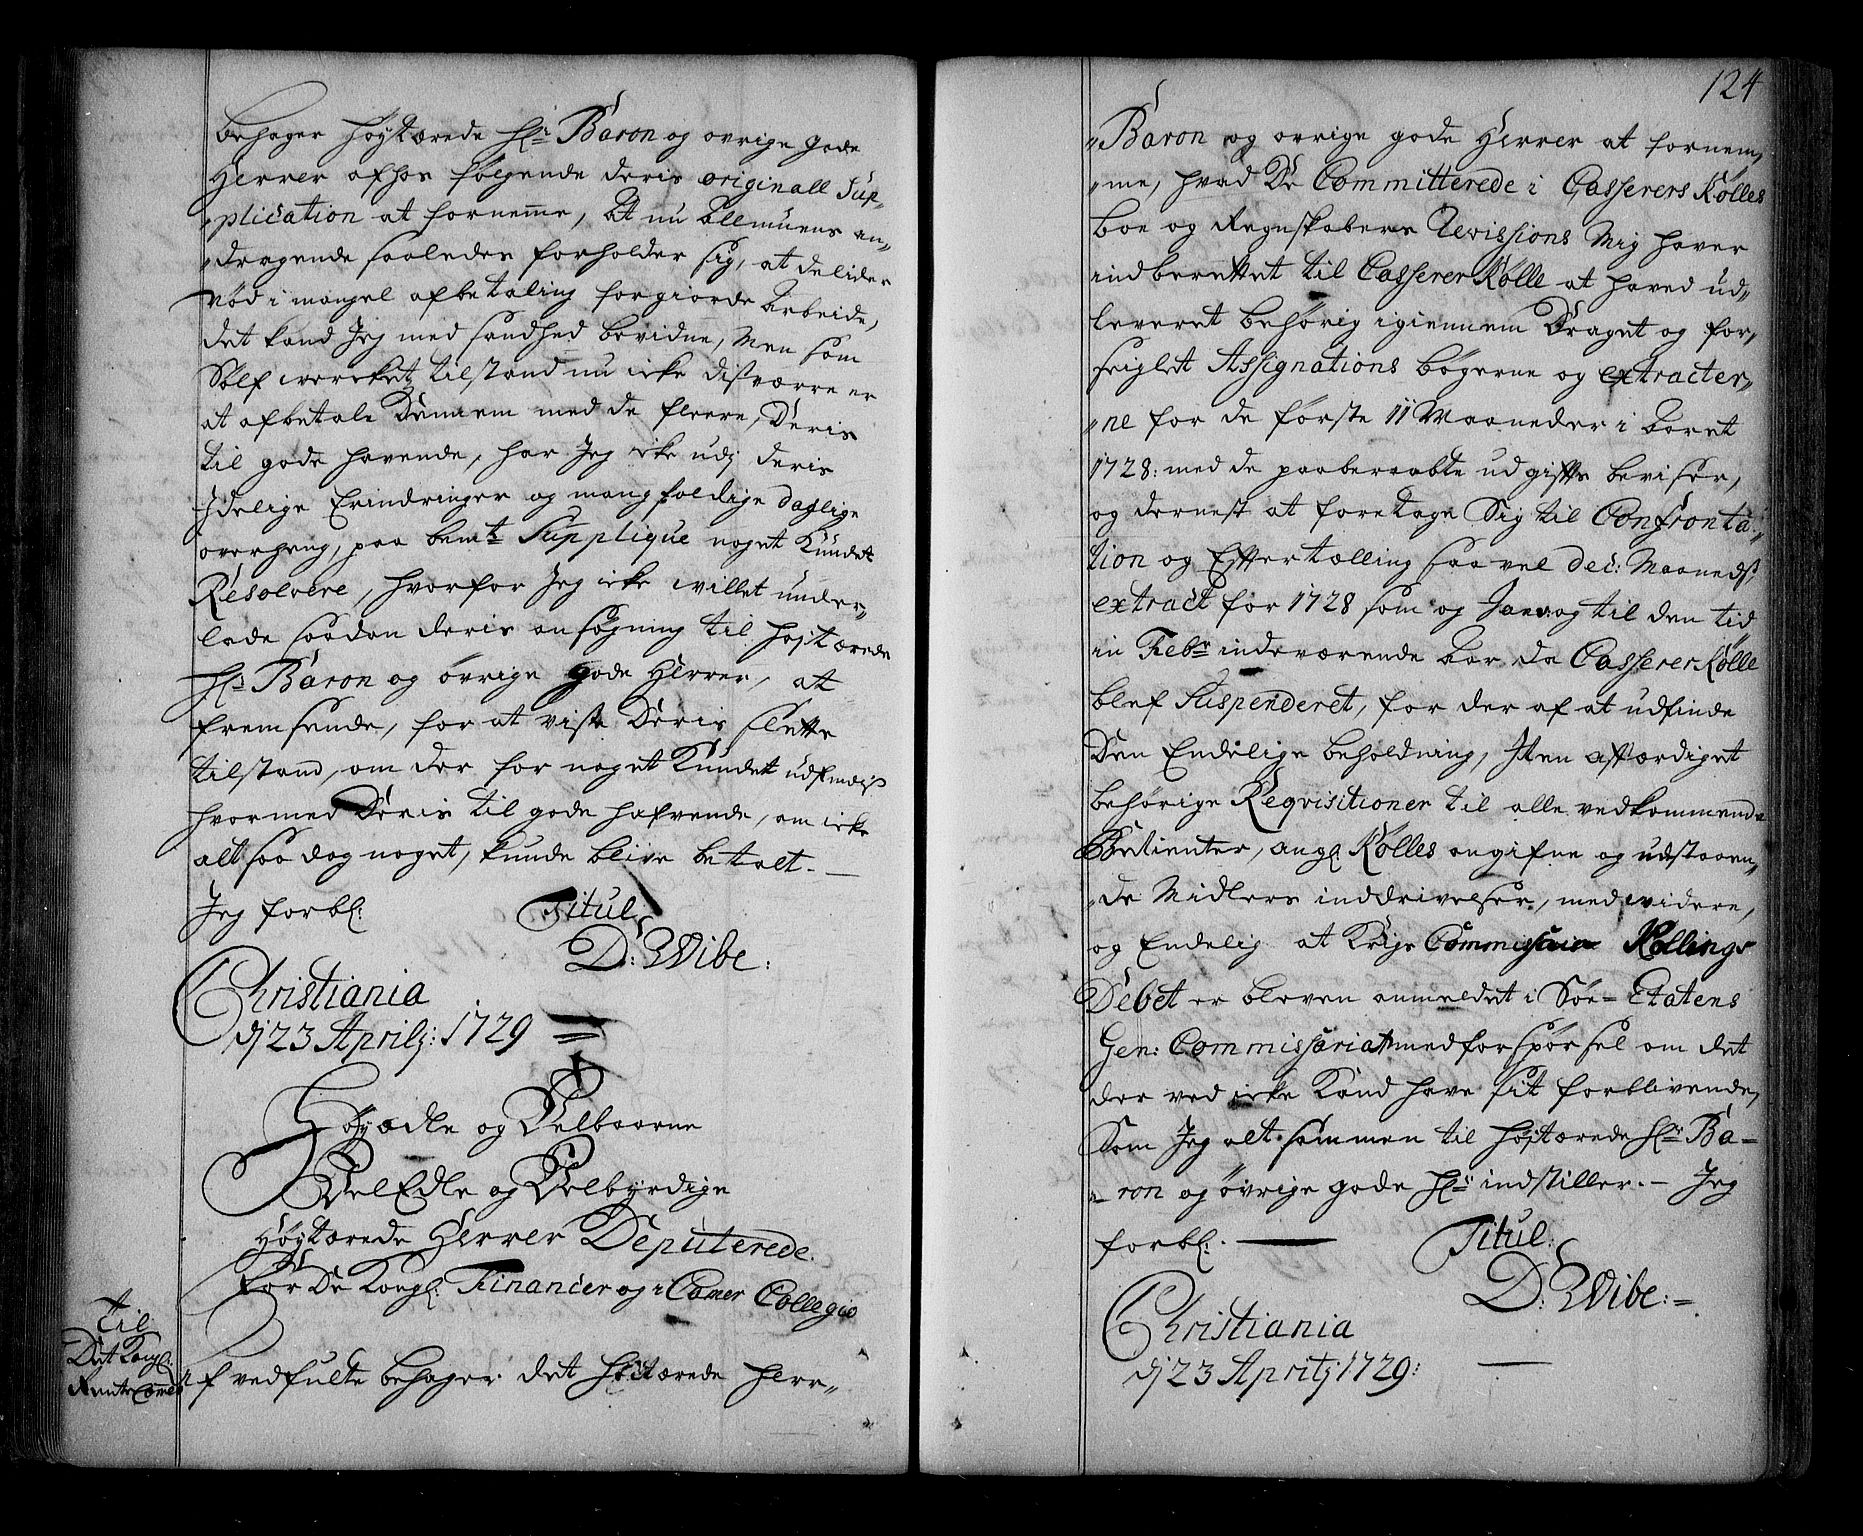 behager høystærede H.r Baron og øvrige gode
Herrer af hos følgende deris originall Sup-
plication at fornemme, At nu Allmuens an-
dragende saaledes forholder sig, at de lider
Nød i mangel af betaling for giorde Arbeide,
det kand Jeg med sandhed bevidne, Men som
Sølf werckets tilstand nu icke disværre er
at afbetale Dennem med de fleere, Deris
til gode havende, har Jeg icke udj deris
Idelige Erindringer og mangfoldige daglige
overheng, paa bemte Supplique noget Kundet
Resolvere, hvorfor Jeg icke willet under-
lade saadan deris ansøgning til høystærede
Hr Baron og øvrige gode Herrer, at
fremsende, for at viste Deris slette
tilstand, om der for noget Kundet udfindis
hvormed Deris til gode hafvende, om icke
alt saa dog noget, kunde blive betalt.
Jeg forbl: Titul
D: Wibe:
Christiania
dj 23 Aprilj: 1729
Høyædle og Velbaarne
Vel Edle og Velbyrdige
Høystærede Herrer Deputerede
for De Kongl: Financier og i Camer Collegio
Til
Det Kongl:
Rente Camer
Af vedfulte behager det høystærede Herr
124
Baron og øvrige gode Herrer at fornem-
me, hvad De Committerede i Casserers Kølles
boe og Regnskabers Revissions Mig haver
indberettet til Casserer Kølle at haved ud-
leveret behørig igiennem Draget og for-
seiglet Assignations bøgerne og extracter-
ne for de første 11 Maaneder i Aaret
1728: med de paaberaabte udgifts beviser,
og dernest at foretage Sig til Confronta-
tion og Efter tælling saa vel Dec: Maaneds
extract for 1728 som og Jan: og til den tid
in Febr indeværende Aar da Casserer Kølle
blef Suspenderet, for der af at udfinde
Den Endelige beholdning, Iten affærdiget
behørige Reqvisitioner til alle vedkommende
Betienter, ang: Kølles angifne og udstaaen-
de Midlers inddrivelser, med widere,
og Endelig at Krigs Commissair Kollings
Debet er bleven anmeldet i Søe-Etatens
Gen: Commissariat med forspørsel om det
der ved icke Kand have sit forblivende,
Som Jeg alt sammen til høystærede Hr Ba-
ron og øvrige gode Hr: indstiller. – Jeg
forbl: Titul:
D: Wibe:
Christiania
dj 23 Aprilj 1729: